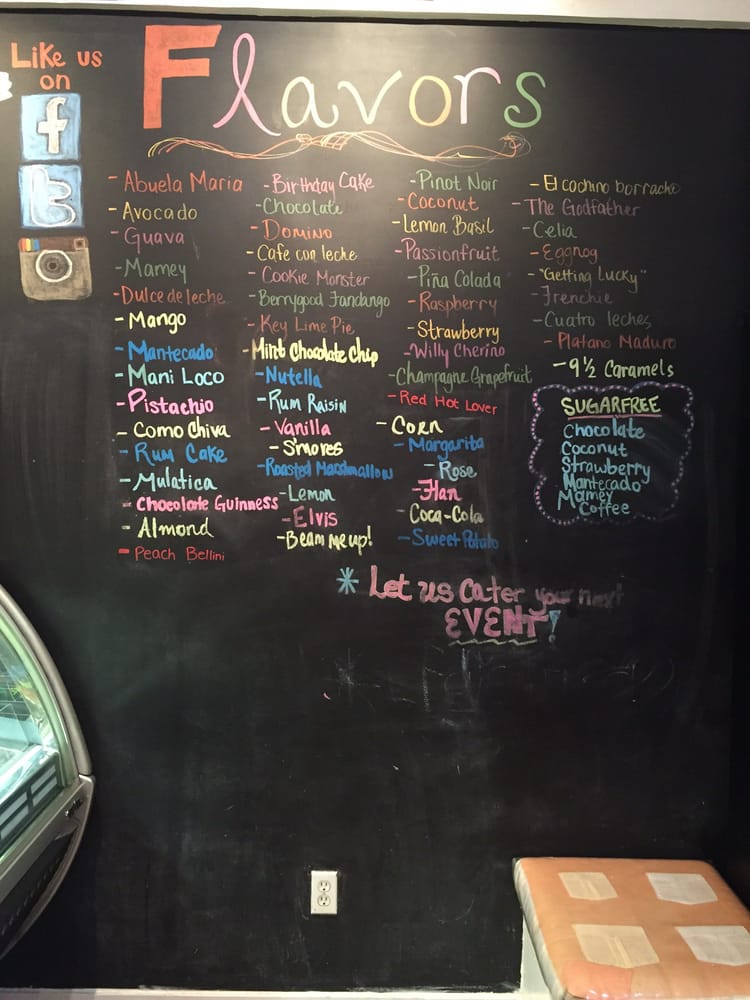 Like us
on
f
t
Flavors
- Abuela Maria
- Avocado
- Guava
- Mamey
- Dulce de leche
- Mango
- Mantecado
- Mani Loco
- Pistachio
- Como Chiva
- Rum Cake
- Mulatica
- Chocolate Guinness
- Almond
- Peach Bellini
- Birthday Cake
- Chocolate
- Domino
- Cafe con leche
- Cookie Monster
- Berrygood Fandango
- Key Lime Pie
- Mint Chocolate Chip
- Nutella
- Rum Raisin
- Vanilla
- S'mores
- Roasted Marshmallow
- Lemon
- Elvis
- Beam me up!
- Pinot Noir
- Coconut
- Lemon Basil
- Passionfruit
- Piña Colada
- Raspberry
- Strawberry
- Willy Cherino
- Champagne Grapefruit
- Red Hot Lover
- Corn
- Margarita
- Rose
- Flan
- Coca-Cola
- Sweet Potato
- El cochino borracho
- The Godfather
- Celia
- Eggnog
- "Getting Lucky"
- Frenchie
- Cuatro leches
- Platano Maduro
- 9½ Caramels
SUGARFREE
Chocolate
Coconut
Strawberry
Mantecado
Mamey
Coffee
* Let us cater your next
EVENT!